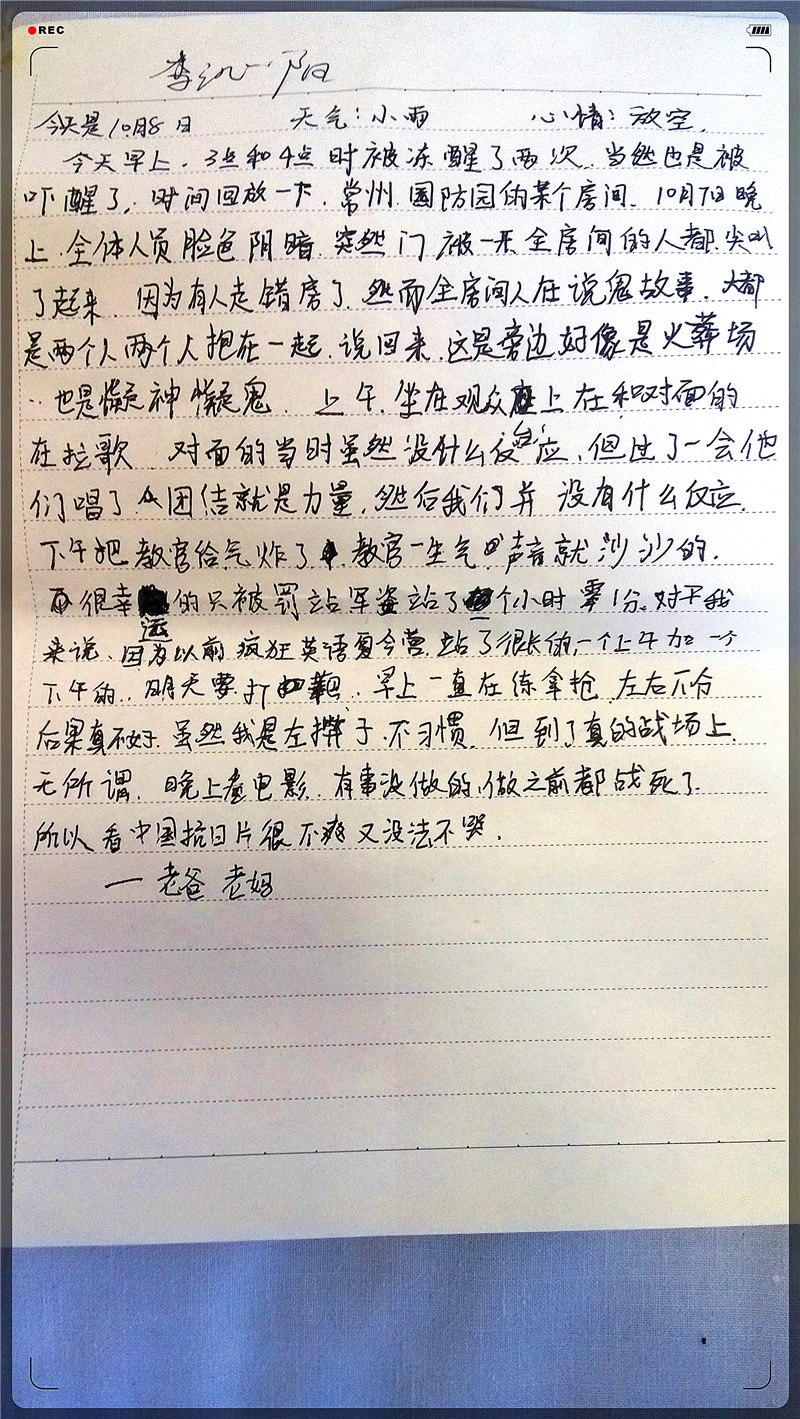 REC
李 一阳
今天是10月8日 天气:小雨 心情:放空.
今天早上.3点和4点时被冻醒了两次.当然也是被
吓醒了,时间回放一下.常州.国防园的某个房间.10月7日晚
上.全体人员脸色阴暗.突然门被一开全房间的人都尖叫
了起来.因为有人走错房了.然而全房间人在说鬼故事.大都
是两个人两个人抱在一起.说回来.这是旁边好像是火葬场
..也是疑神疑鬼.上午.坐在观众座上在和对面的
在拉歌.对面的当时虽然没什么反应,但过了一会他
们唱了团结就是力量,然后我们并没有什么反应.
下午把教官给气炸了.教官一生气声音就沙沙的.
很幸运的只被罚站军姿站了个小时零1分.对于我
来说.因为以前疯狂英语夏令营.站了很长的,一个上午加一个
下午的.明天要打靶.早上一直在练拿枪.左右不分
后果真不好.虽然我是左撇子.不习惯.但到了真的战场上.
无所谓.晚上查电影.有事没做的,做之前都战死了.
所以看中国抗日片很不爽又没法不哭.
一老爸老妈